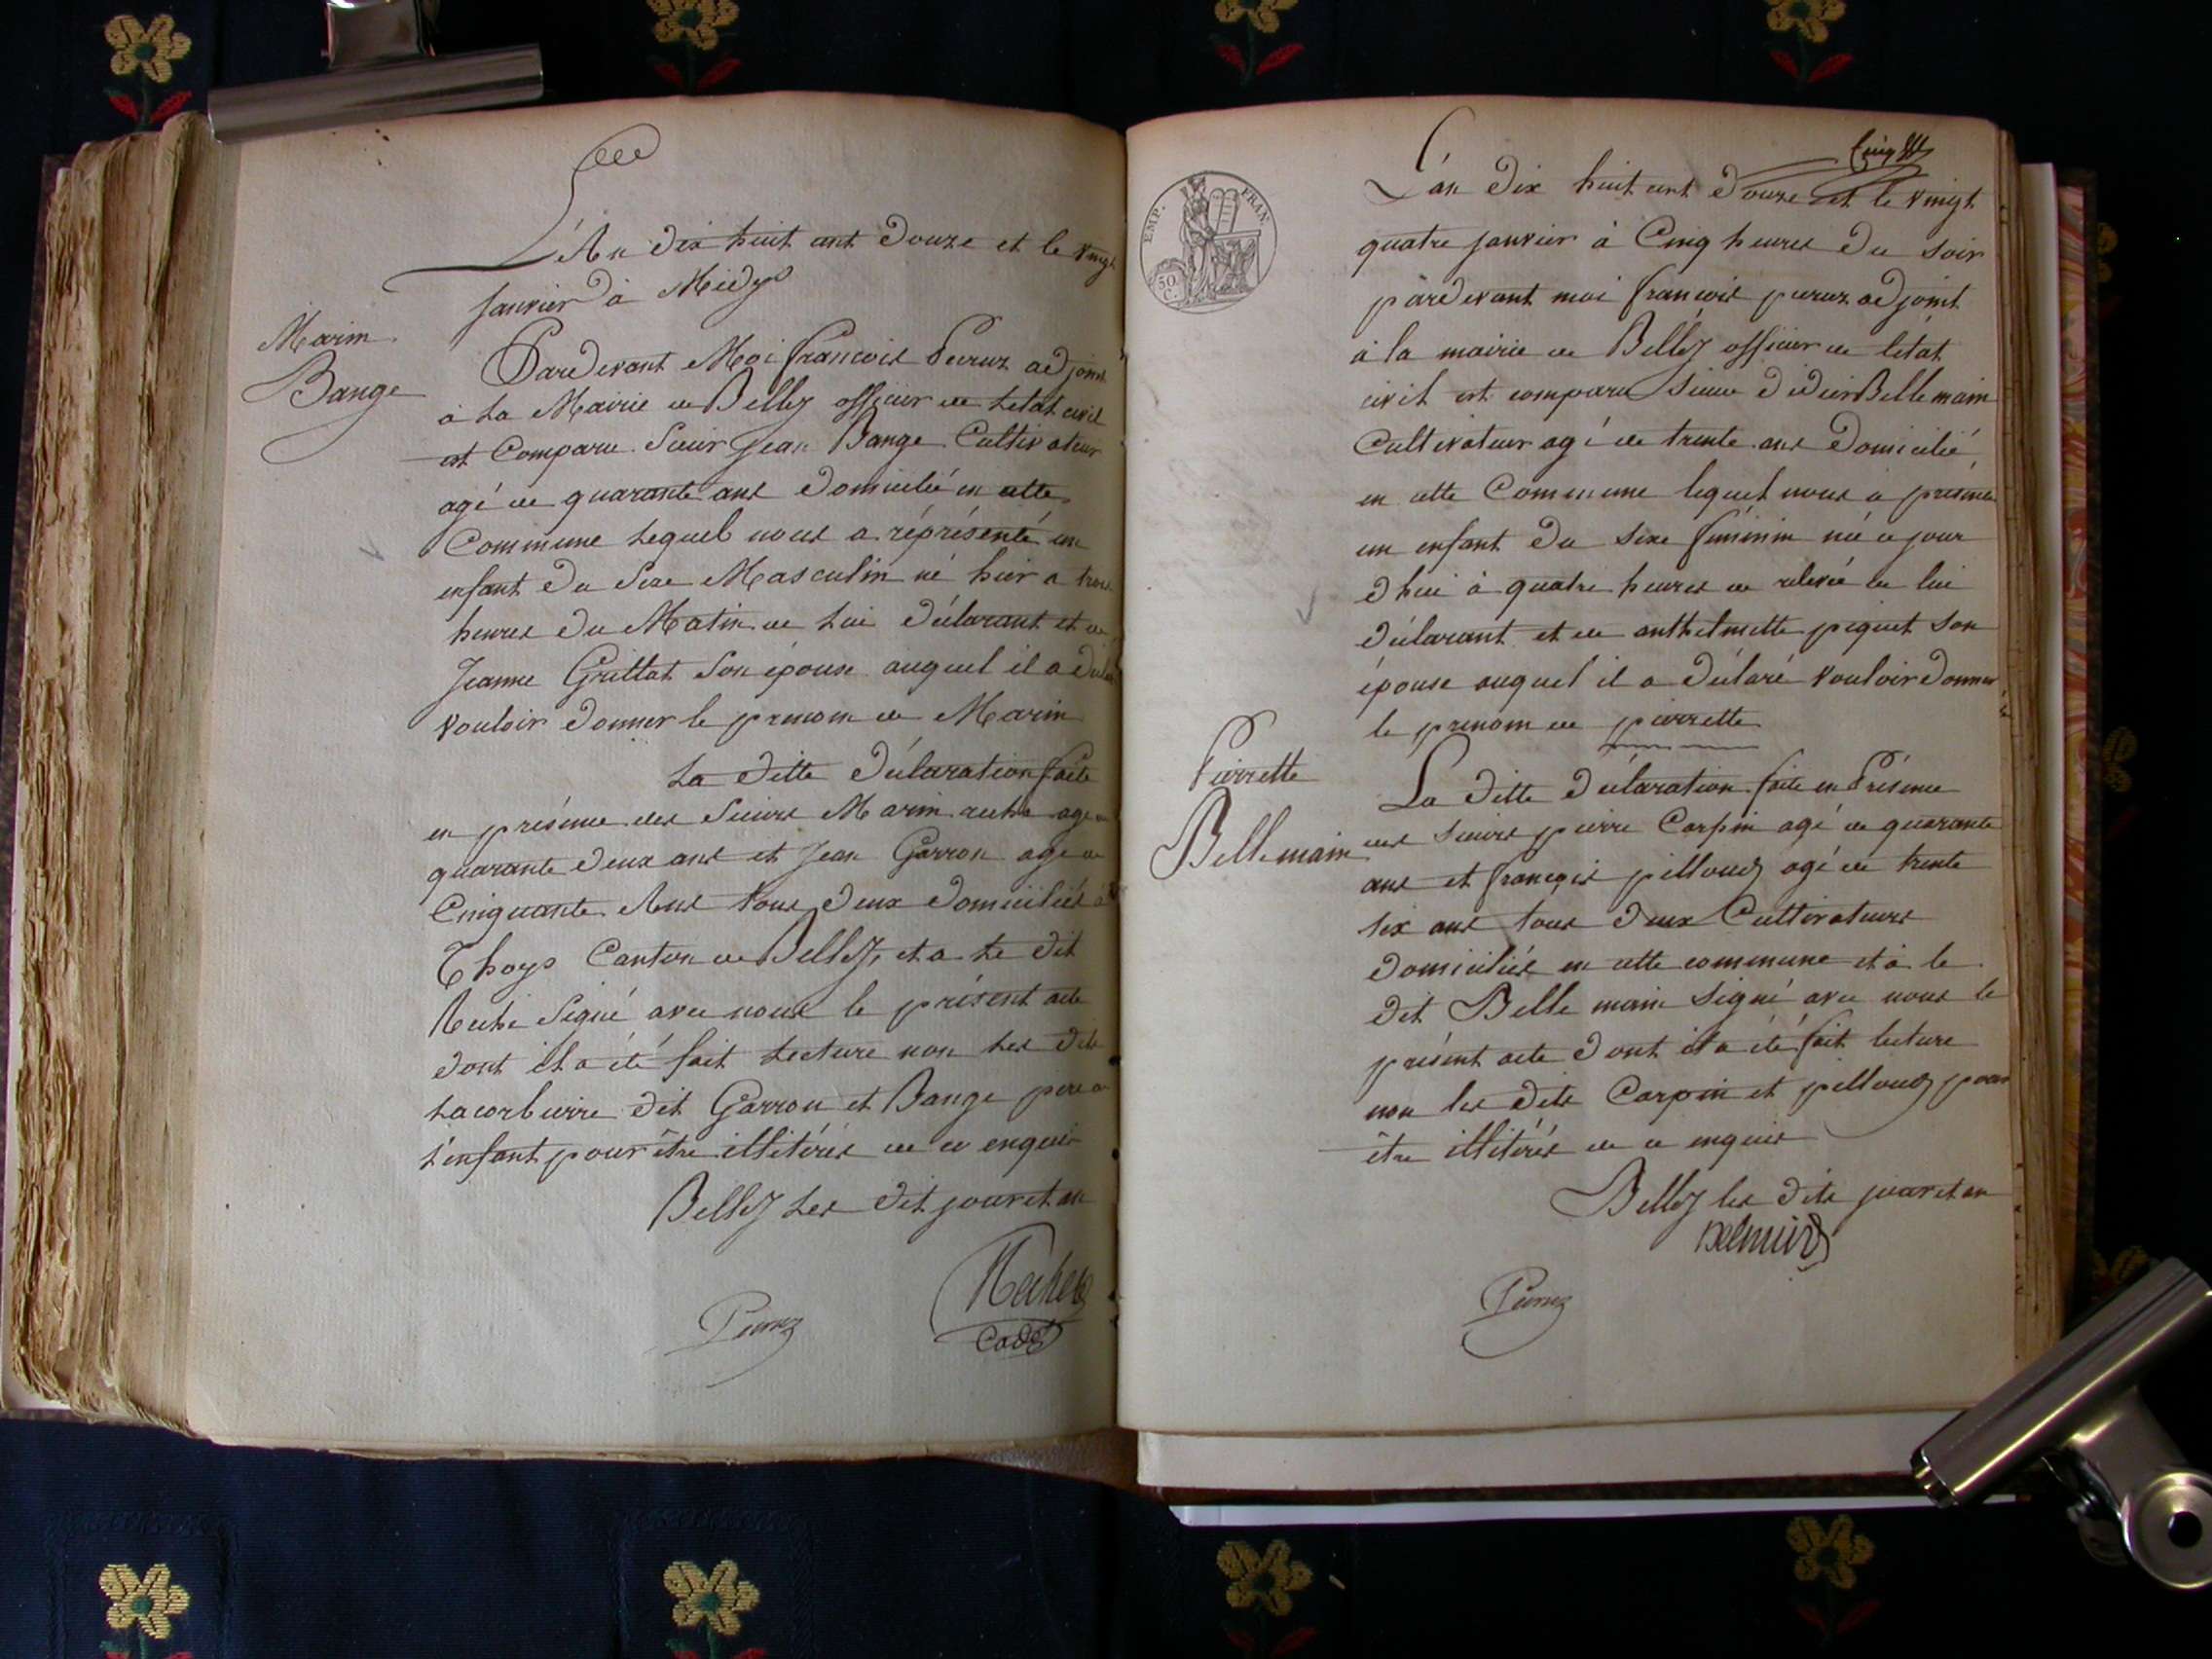 L'An dix huit cent douze et le vingt
janvier à Midy
Marin
Bange
Pardevant Moi françois Peruz adjoint
à La Mairie de Belley officier de Létat civil
est Comparu Sieur Jean Bange Cultivateur
agé de quarante ans domicilié en cette
Commune Lequel nous a réprésenté un
enfant du Sexe Masculin né hier a trois
heures du Matin de Lui déclarant et de
Jeanne Grillat Son épouse auquel il a déclaré
vouloir donner le prenom de Marin
La ditte déclaration faite
en présence des Sieurs Marin age de
quarante deux ans et Jean Garron age de
Cinquante Ans tous deux domiciliés à
Thoys Canton de Belley, et a Le dit
Signé avec nous le présent acte
dont il a été fait Lecture non Les dits
dit Garron et Bange pere de
L'enfant pour être illitérés de ce enquis
Belley Les dit jour et an
Peruz
Cadet
Cinq
EMP. FRAN.
50 C.
L'an dix huit cent douze et le vingt
quatre janvier à Cinq heures du soir
pardevant moi françois peruz adjoint
à la mairie de Belley officier de létat
civil est comparu Sieur didier Bellemain
Cultivateur agé de trente ans domicilié
en cette Commune lequel nous a présenté
un enfant du sexe féminin née ce jour
dhui à quatre heures de relevée de lui
déclarant et de anthelmette piquet son
épouse auquel il a déclaré vouloir donner
le prenom de pierrette
Pierrette
Bellemain
La ditte déclaration faite en Présence
des sieurs pierre Carpin agé de quarante
ans et françois pilloud agé de trente
six ans tous deux Cultivateurs
domiciliés en cette commune et à le
dit Belle main signé avec nous le
présent acte dont il a été fait lecture
non les dits Carpin et pilloud pour
être illitérés de ce enquis
Belley les dits jour et an
Peruz